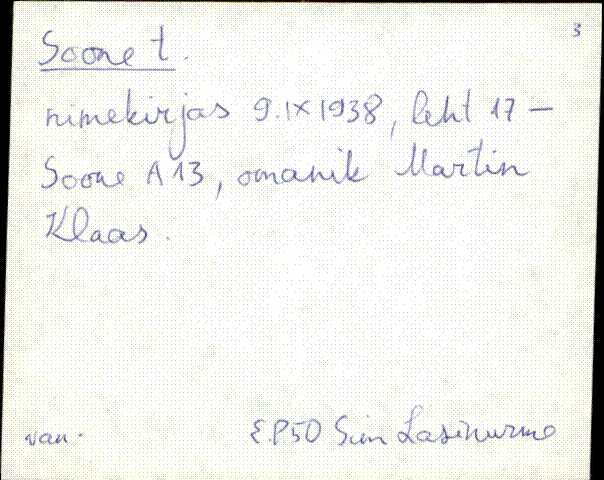 3
Soone t.
nimekirjas 9.IX 1938, leht 17 –
Soone A 13, omanik Martin
Klaas.
van.
E.P50 Sim Lasinurme